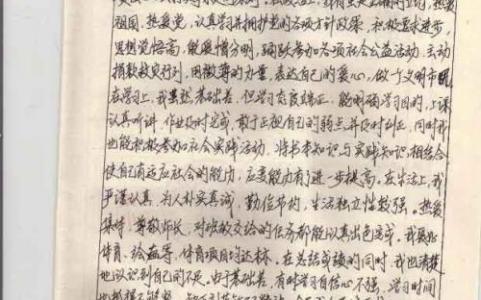 祖国,热爱党,认真学习并拥护党的各项方针政策,积极要求进步,
思想觉悟高,能爱憎分明,踊跃参加各项社会公益活动,主动
捐款救灾行列,用微薄的力量,表达自己的爱心,做个文明市民
在学习上,我虽然基础差,但学习态度端正,能明确学习目的,上课
认真听讲,作业及时完成,敢于正视自己的弱点并及时纠正,同时我
也能积极参加社会实践活动,将书本知识与实践知识相结合
使自己有适应社会的能力,应变能力有进一步提高,在生活上,我
严谨认真,为人朴实真诚,勤俭节约,生活独立性较强。热爱
集体,尊敬师长,对班级交给的任务都能认真出色完成。我喜欢
体育、绘画等,体育项目均达标。在总结成绩的同时,我也清楚
地认识到自己的不足。由于基础差,有时学习自信心不强,学习时间